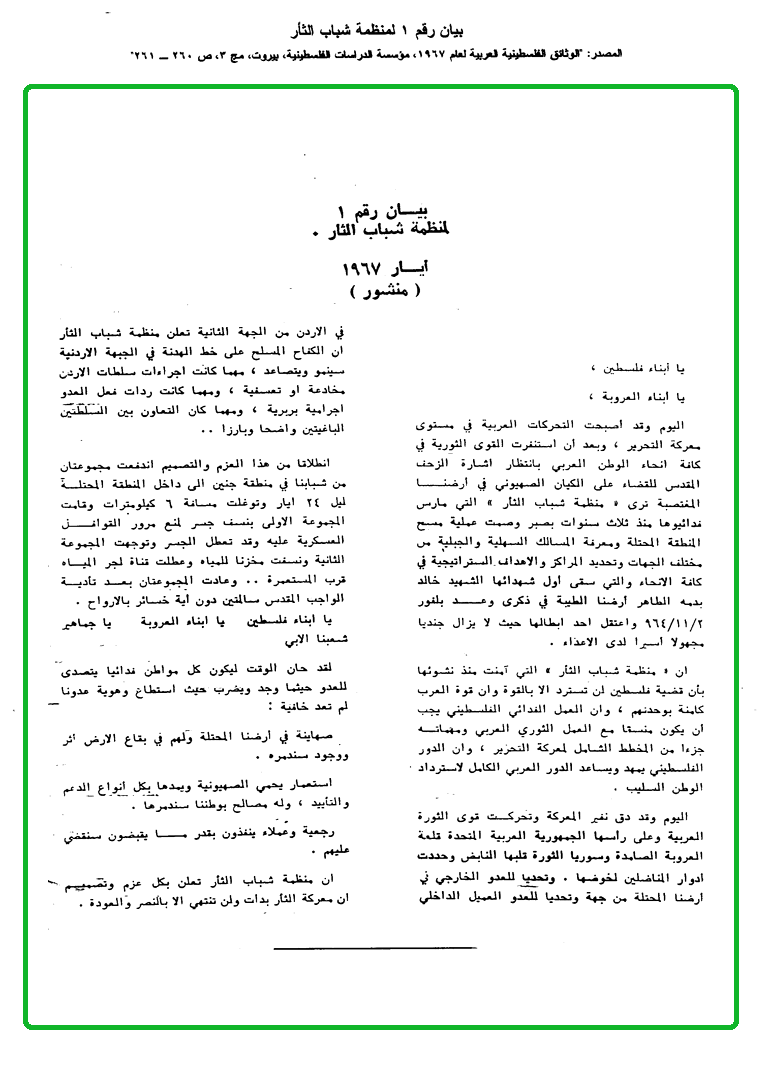 بيان رقم ١ لمنظمة شباب الثأر
المصدر: "الوثائق الفلسطينية العربية لعام ١٩٦٧، مؤسسة الدراسات الفلسطينية، بيروت، مج ٣، ص ٢٦٠ – ٢٦١"
بيـــان رقم ١
لمنظمة شباب الثأر .
أيـــار ١٩٦٧
( منشور )
يا أبناء فلسطين ،
يا أبناء العروبة ،
اليوم وقد أصبحت التحركات العربية في مستوى
معركة التحرير ، وبعد أن استنفرت القوى الثورية في
كافة انحاء الوطن العربي بانتظار اشارة الزحف
المقدس للقضاء على الكيان الصهيوني في أرضنـــا
المغتصبة ترى « منظمة شباب الثأر » التي مارس
فدائيوها منذ ثلاث سنوات بصبر وصمت عملية مسح
المنطقة المحتلة ومعرفة المسالك السهلية والجبلية من
مختلف الجهات وتحديد المراكز والاهداف الستراتيجية في
كافة الانحاء والتي سقى أول شهدائها الشهيد خالد
بدمه الطاهر أرضنا الطيبة في ذكرى وعـــد بلفور
٩٦٤/١١/٢ واعتقل احد ابطالها حيث لا يزال جنديا
مجهولا أسيرا لدى الاعداء .
ان « منظمة شباب الثأر » التي آمنت منذ نشوئها
بأن قضية فلسطين لن تسترد الا بالقوة وان قوة العرب
كامنة بوحدتهم ، وان العمل الفدائي الفلسطيني يجب
أن يكون منسقا مع العمل الثوري العربي ومهماتـــه
جزءا من المخطط الشامل لمعركة التحرير ، وان الدور
الفلسطيني يمهد ويساعد الدور العربي الكامل لاسترداد
الوطن السليب .
اليوم وقد دق نفير المعركة وتحركـت قوى الثورة
العربية وعلى رأسها الجمهورية العربية المتحدة قلعة
العروبة الصامدة وسوريا الثورة قلبها النابض وحددت
أدوار المناضلين لخوضها . وتحديا للعدو الخارجي في
أرضنا المحتلة من جهة وتحديا للعدو العميل الداخلي
في الاردن من الجهة الثانية تعلن منظمة شباب الثأر
ان الكفاح المسلح على خط الهدنة في الجبهة الاردنية
سينمو ويتصاعد ، مهما كانت اجراءات سلطات الاردن
مخادعة او تعسفية ، ومهما كانت ردات فعل العدو
اجرامية بربرية ، ومهما كان التعاون بين السلطتين
الباغيتين واضحا وبارزا ..
انطلاقا من هذا العزم والتصميم اندفعت مجموعتان
من شبابنا في منطقة جنين الى داخل المنطقة المحتلـــة
ليل ٢٤ ايار وتوغلت مسافة ٦ كيلومترات وقامت
المجموعة الاولى بنسف جسر لمنع مرور القوافـــل
العسكرية عليه وقد تعطل الجسر وتوجهت المجموعة
الثانية ونسفت مخزنا للمياه وعطلت قناة لجر الميـــاه
قرب المستعمرة .. وعادت المجموعتان بعـــد تأديـــة
الواجب المقدس سالمتين دون أية خسائر بالارواح .
يا ابناء فلسطين يا ابناء العروبة يا جماهير
شعبنا الابي
لقد حان الوقت ليكون كل مواطن فدائيا يتصدى
للعدو حيثما وجد ويضرب حيث استطاع وهوية عدونا
لم تعد خافية :
صهاينة في أرضنا المحتلة ولهم في بقاع الارض أثر
ووجود سندمره .
استعمار يحمي الصهيونية ويمدها بكل أنواع الدعم
والتأييد ، وله مصالح بوطننا سندمرها .
رجعية وعملاء ينفذون بقدر مـــا يقبضون سنقضي
عليهم .
ان منظمة شباب الثأر تعلن بكل عزم وتصميـــم
ان معركة الثأر بدأت ولن تنتهي الا بالنصر والعودة .